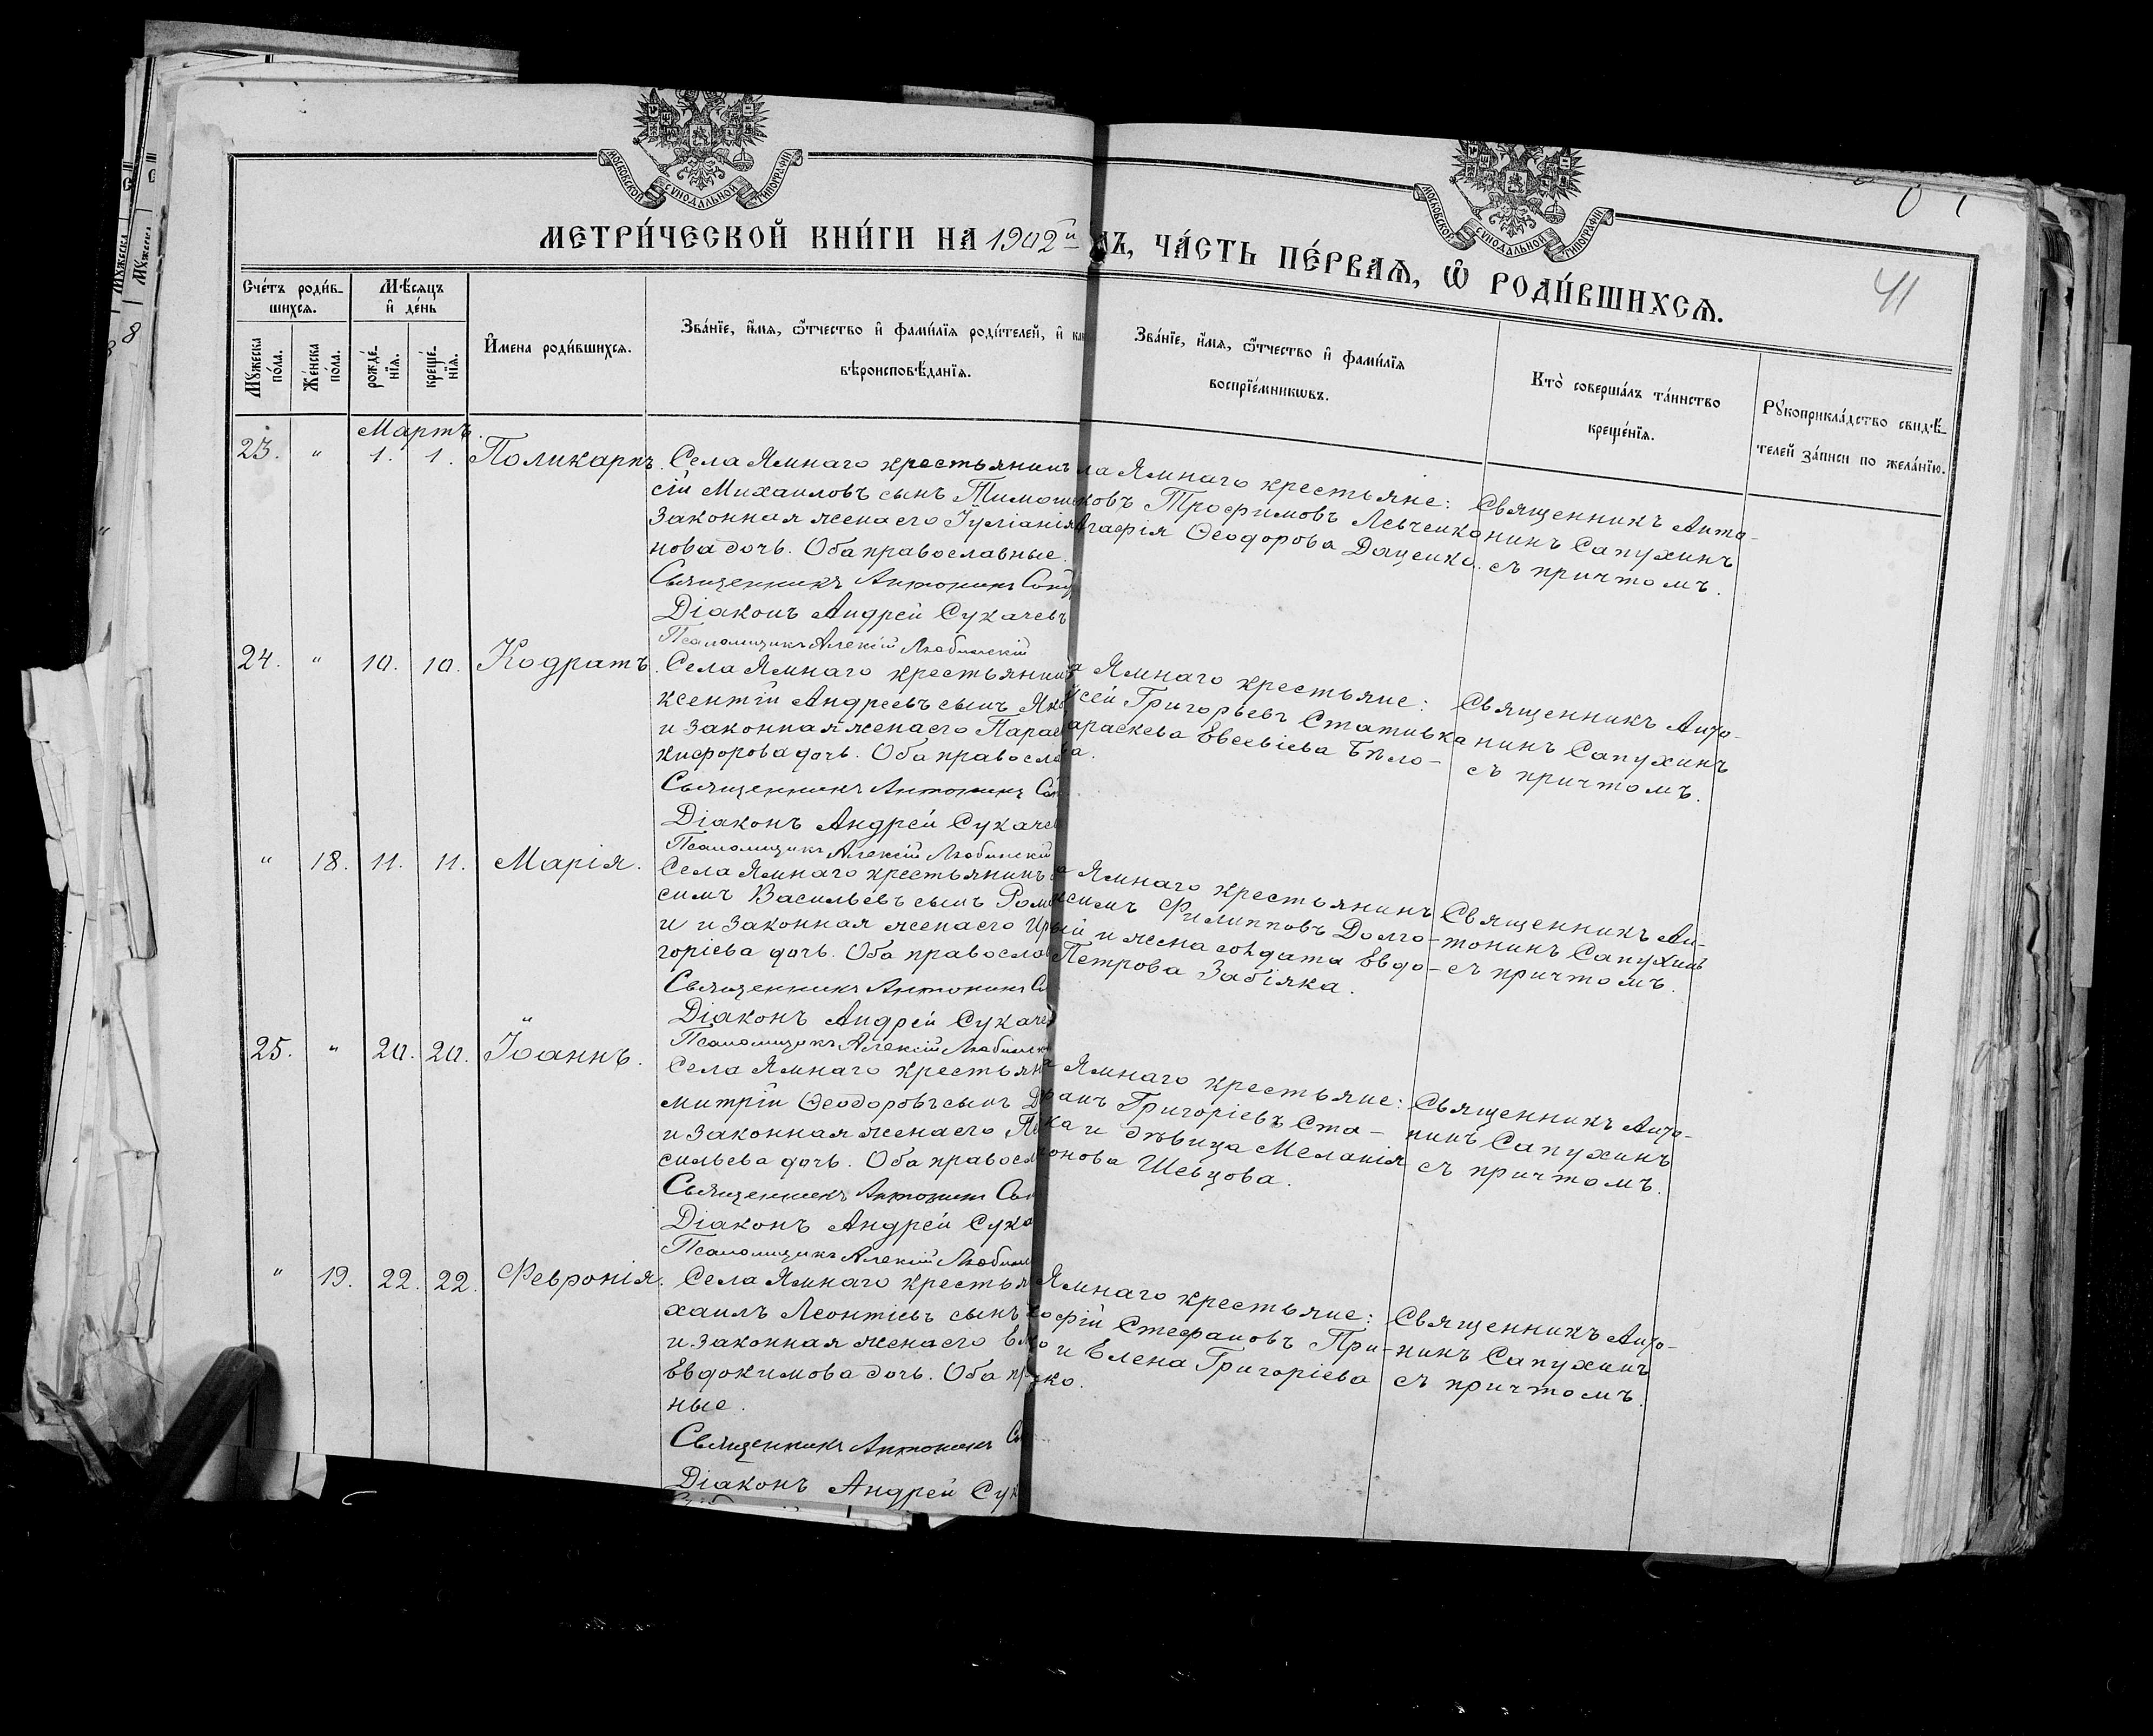 МОСКОВСКОЙ СѴНОДАЛЬНОЙ ТИПОГРАФІИ
МОСКОВСКОЙ СѴНОДАЛЬНОЙ ТИПОГРАФІИ
МЕТРИ́ЧЕСКОЙ КНИ́ГИ НА 1902й
ДЪ, ЧА́СТЬ ПЕ́РВАѦ, Ѡ҆ РОДИ́ВШИХСѦ.
41
Сче́тъ роди́в-
шихсѧ.
Мѣ́сѧцъ
и҆ де́нь
Мꙋ́жеска по́ла.
Же́нска по́ла.
рожде́-
нїѧ.
креще́-
нїѧ.
И҆мена роди́вшихсѧ.
Зва́нїе, и҆́мѧ, ѻ҆́тчество и҆ фами́лїѧ роди́телей, и҆
вѣроисповѣ́данїѧ.
Зва́нїе, и҆́мѧ, ѻ҆́тчество и҆ фами́лїѧ
воспрїе́мникѡвъ.
Кто̀ соверша́лъ та́инство
креще́нїѧ.
Рꙋкоприкла́дство свидѣ́-
телей за́писи по жела́нїю.
Мартъ.
23. " 1. 1. Поликарпъ.
Села Ямнаго крестьянинъ
сій Михаиловъ сынъ
Законная жена его Іуліанія
нова дочь. Оба православные.
Священникъ Антонинъ
Діаконъ Андрей Сукачевъ
Псаломщикъ Алексій Любинскій
ла Ямнаго крестьяне:
ковъ Трофимовъ Левченко
Агафія Ѳеодорова Даценко.
Священникъ Анто-
нинъ Сапухинъ
съ причтомъ.
24. " 10. 10. Кодратъ.
Села Ямнаго крестьянинъ
ксентій Андреевъ сынъ
и законная жена его Парас
кифорова дочь. Оба правосла
Священникъ Антонинъ
Діаконъ Андрей Сукачев
Псаломщикъ Алексій Любинскій
а Ямнаго крестьяне:
сей Григорьевъ Стативка
араскева Евсевіева Бѣло-
а.
Священникъ Анто-
нинъ Сапухинъ
съ причтомъ.
" 18. 11. 11. Марія.
Села Ямнаго крестьянинъ
симъ Васильевъ сынъ Ром
и законная жена его
горіева дочь. Оба правосла
Священникъ Антонинъ
Діаконъ Андрей Сукаче
Псаломщикъ Алексій Любинск
а Ямнаго крестьянинъ
ксимъ Филипповъ Долго-
ій и жена солдата Евдо-
Петрова Забіяка.
Священникъ Ан-
тонинъ Сапухинъ
съ причтомъ.
25. " 20. 20. Іоаннъ.
Села Ямнаго крестьян
митрій Ѳеодоровъ сынъ
и законная жена его
сильева дочь. Оба правосл
Священникъ Антонинъ
Діаконъ Андрей Сука
Псаломщикъ Алексій Любин
а Ямнаго крестьяне:
анъ Григоріевъ Ста-
ка и дѣвица Меланія
онова Шевцова.
Священникъ Анто-
нинъ Сапухинъ
съ причтомъ.
" 19. 22. 22. Февронія.
Села Ямнаго крестья
хаилъ Леонтіевъ сынъ
и законная жена его
Евдокимова дочь. Оба пр
ные.
Священникъ Антонинъ
Діаконъ Андрей Сук
Ямнаго крестьяне:
фій Стефановъ При-
и Елена Григоріева
ко.
Священникъ Анто-
нинъ Сапухинъ
съ причтомъ.